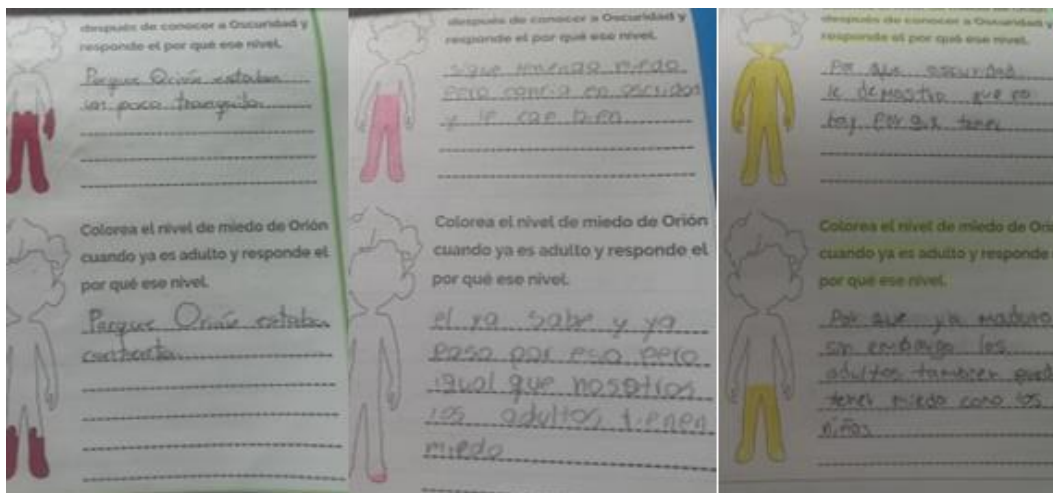 después de conocer a Oscuridad y
responde el por qué ese nivel.
Porque Orión estaban
un poco tranquilo
Colorea el nivel de miedo de Orión
cuando ya es adulto y responde el
por qué ese nivel.
Porque Orión estaba
contento
después de conocer a Oscuridad y
responde el por qué ese nivel.
sigue teniendo miedo
pero en
y le cae bien
Colorea el nivel de miedo de Orión
cuando ya es adulto y responde el
por qué ese nivel.
el ya sabe y ya
paso por eso pero
igual que nosotros
los adultos tienen
miedo
después de conocer a Oscuridad y
responde el por qué ese nivel.
Por que oscuridad
le demostro que no
hay por que tener
Colorea el nivel de miedo de Orió
cuando ya es adulto y responde
por qué ese nivel.
Por que ya maduro
sin embargo los
adultos tambien
tener miedo como los
niños